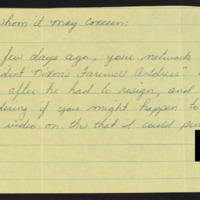 whom it may concern:
few days ago, your network
dent Nixon's Farewell Address"
after he had to resign, and
dering if you might happen to
video on the that I could pur